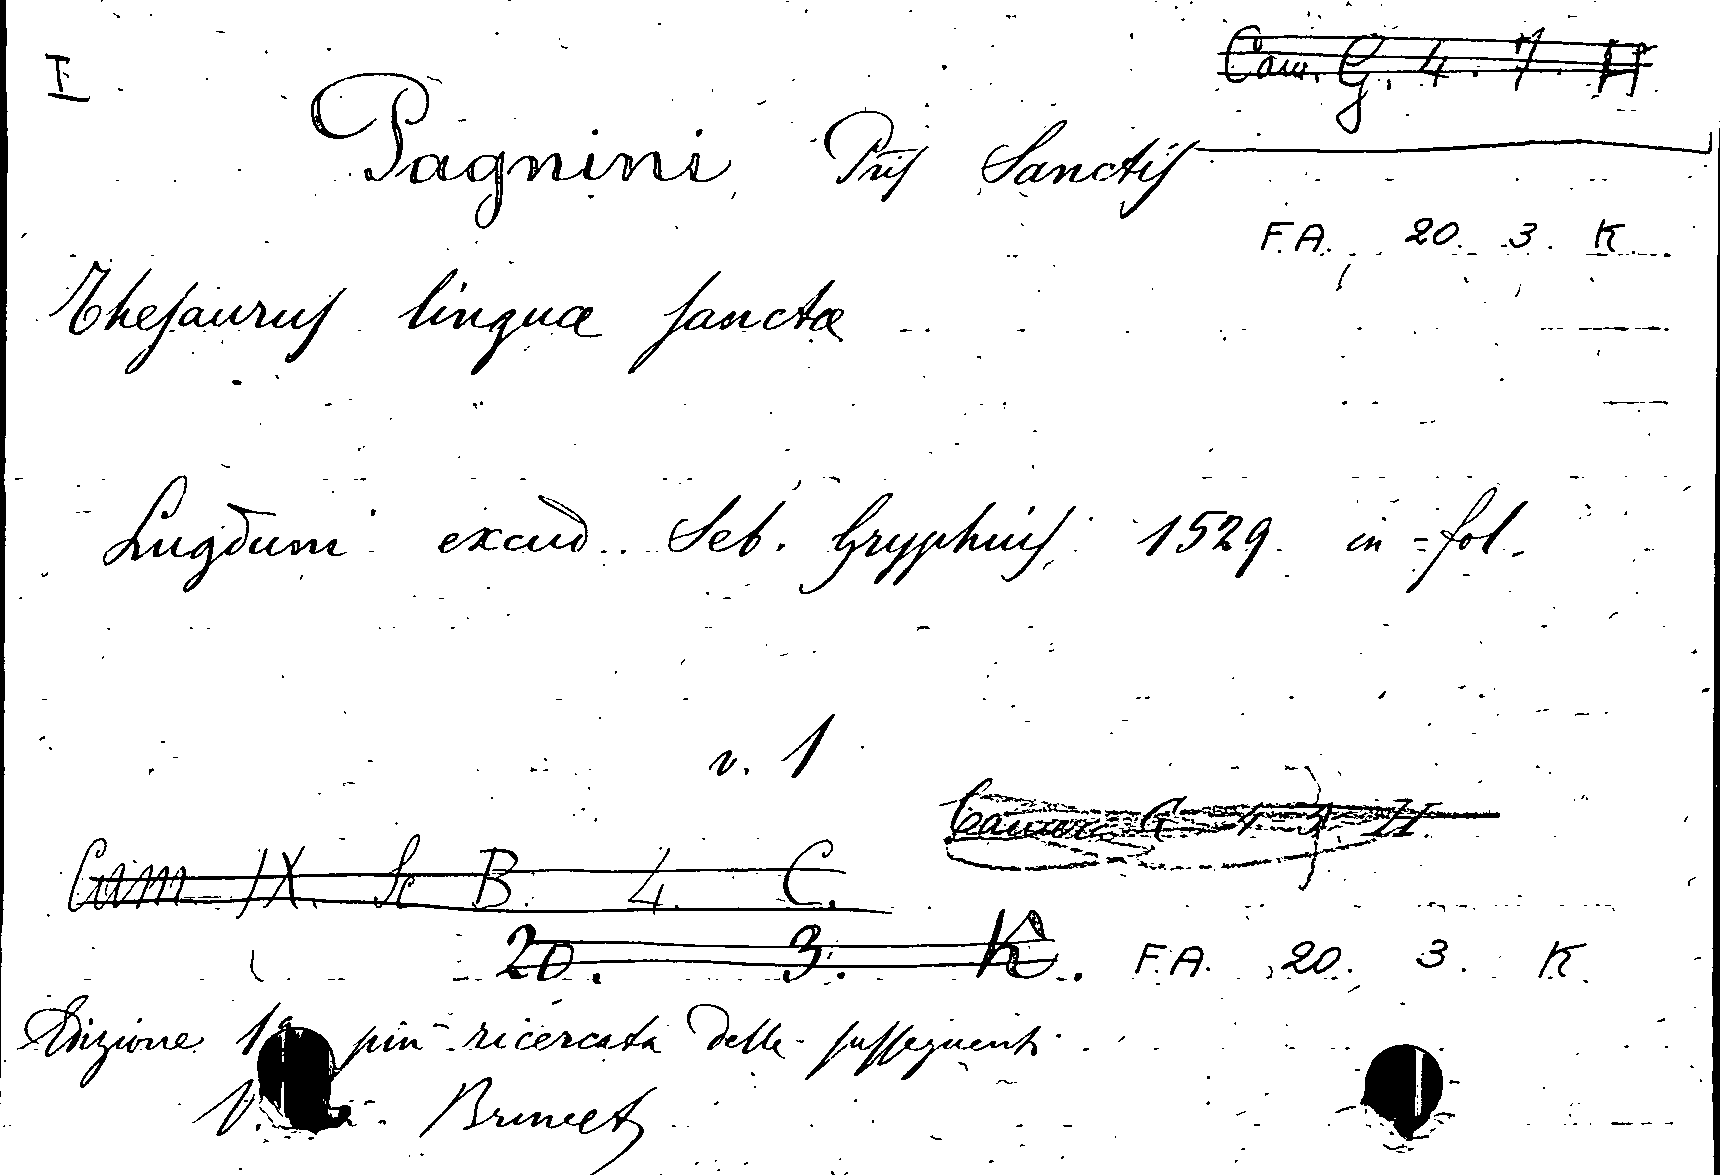 I
Cam. G. 4. 7. H
Pagnini Pris Sanctis
F.A. 20. 3. K
Thesaurus linguæ sanctæ
Lugduni excud. Seb. Gryphius, 1529. in=fol.
v. 1
Camera G 4 7 H
Cam IX. Sc B. 4. C.
20. 3. K. F.A. 20. 3. K
Edizione 1a più ricercata delle susseguenti.
V. Brunet